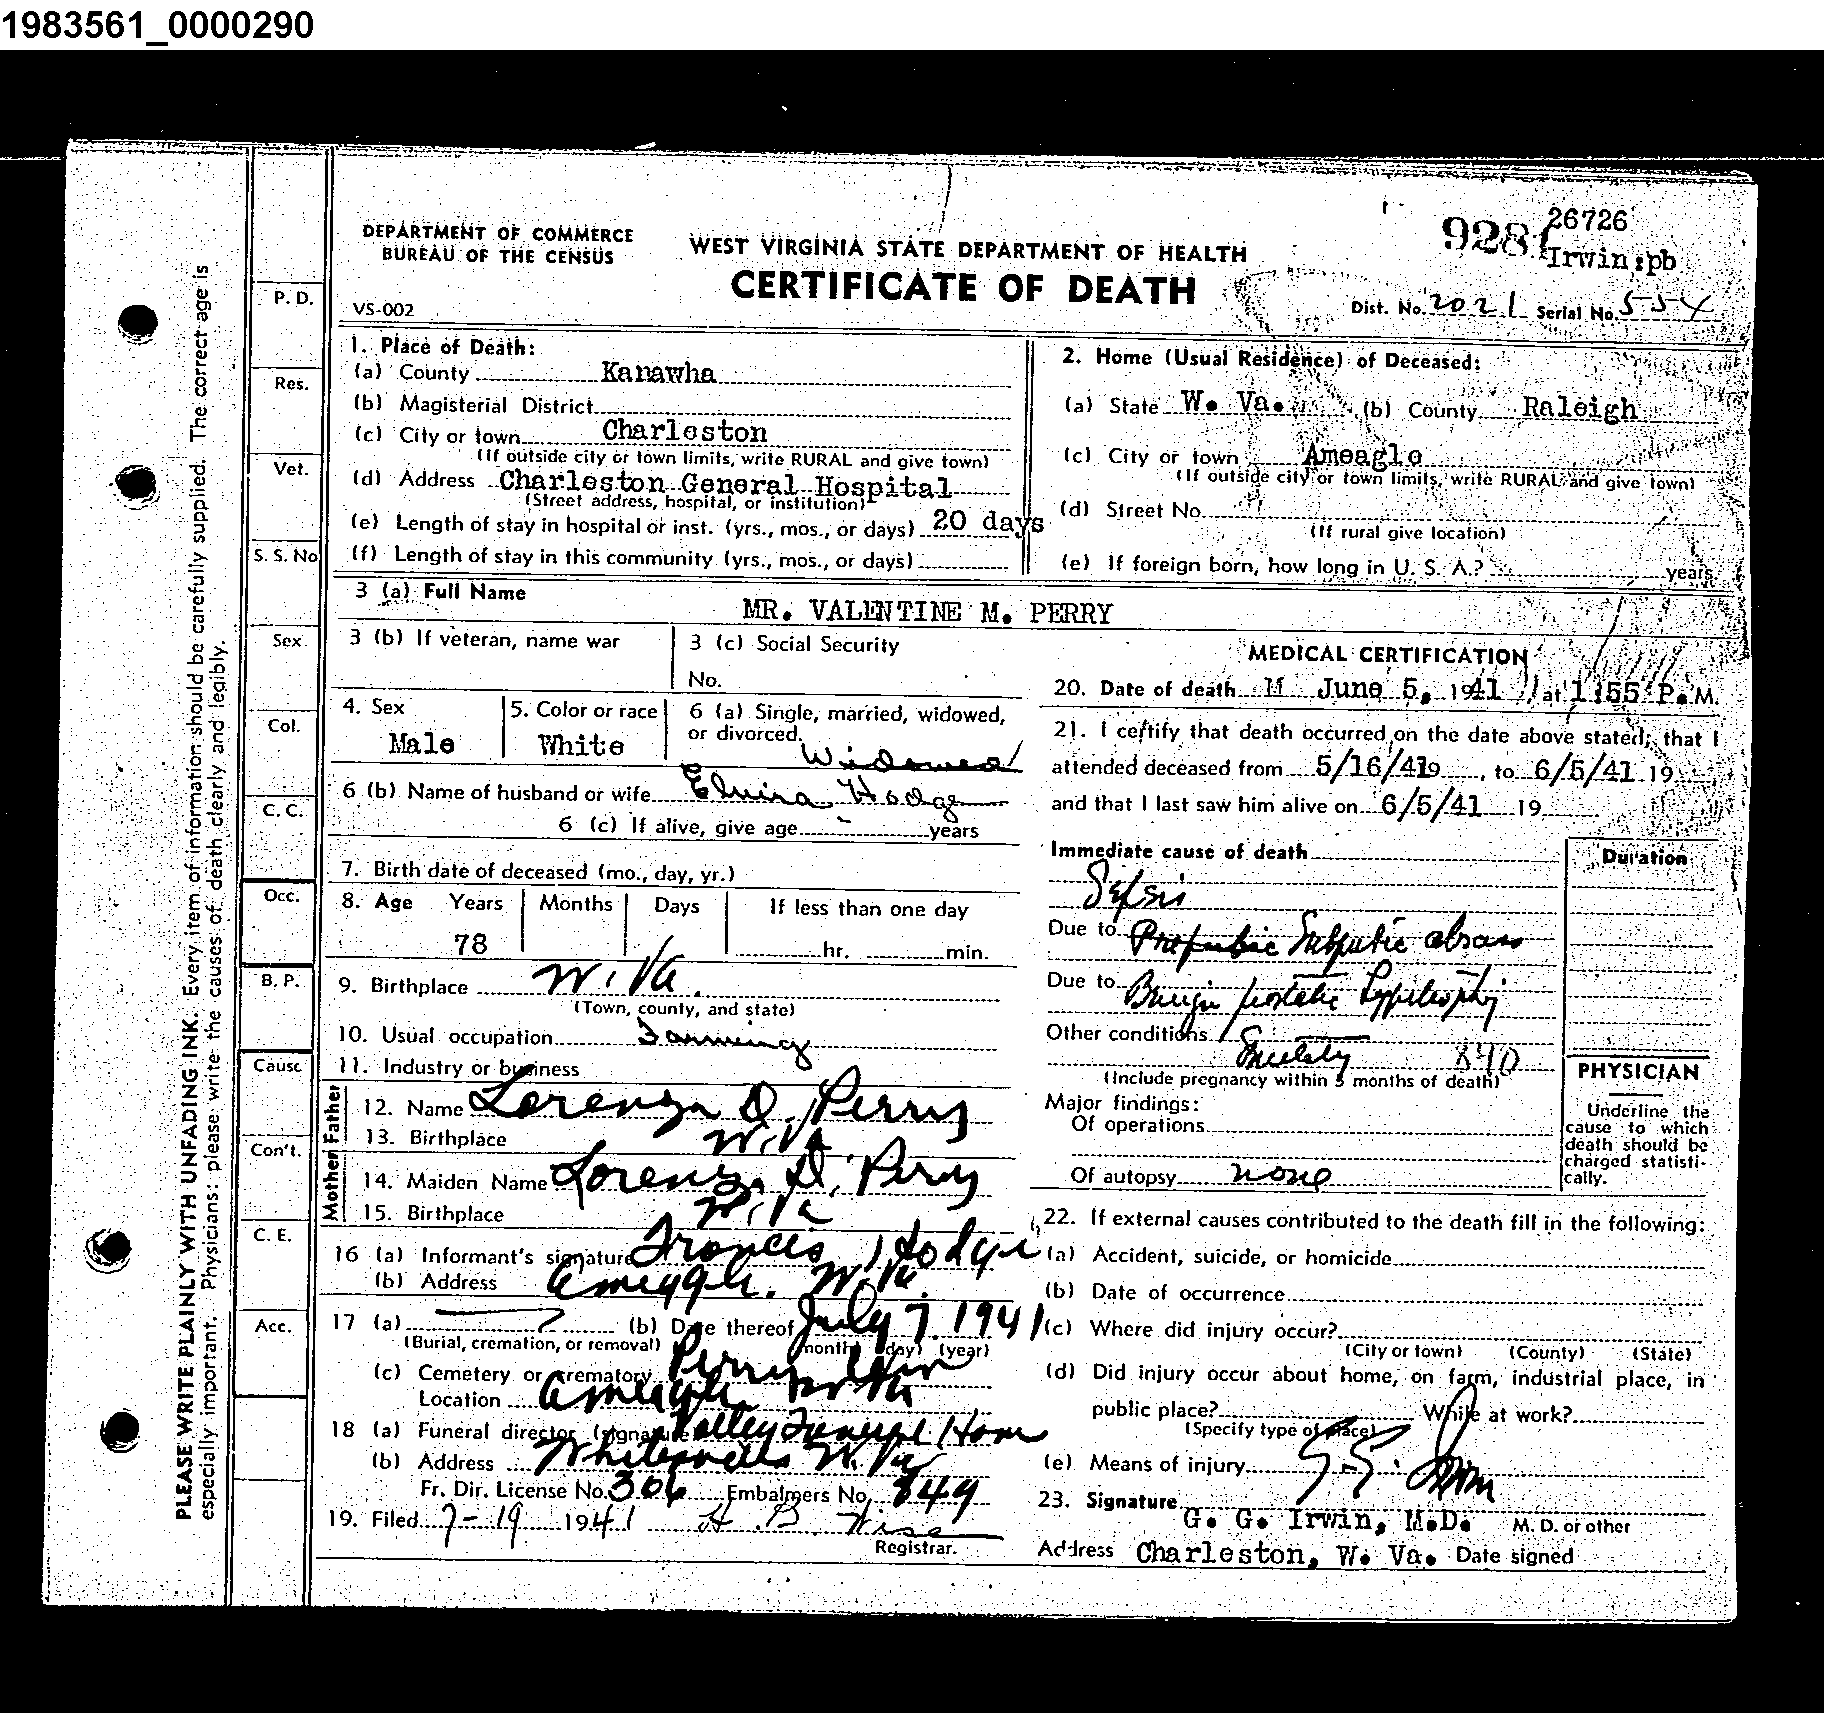 1983561_0000290
DEPARTMENT OF COMMERCE
BUREAU OF THE CENSUS
WEST VIRGINIA STATE DEPARTMENT OF HEALTH
CERTIFICATE OF DEATH
9281
26726
Irwin:pb
VS-002
Dist. No. 2021 Serial No. 554
1. Place of Death:
(a) County Kanawha
(b) Magisterial District
(c) City or town Charleston
(If outside city or town limits, write RURAL and give town)
(d) Address Charleston General Hospital
(Street address, hospital, or institution)
(e) Length of stay in hospital or inst. (yrs., mos., or days) 20 days
(f) Length of stay in this community (yrs., mos., or days)
2. Home (Usual Residence) of Deceased:
(a) State W. Va. (b) County Raleigh
(c) City or town Ameagle
(If outside city or town limits, write RURAL and give town)
(d) Street No.
(If rural give location)
(e) If foreign born, how long in U. S. A.? years
3 (a) Full Name
MR. VALENTINE M. PERRY
3 (b) If veteran, name war
3 (c) Social Security
No.
4. Sex
Male
5. Color or race
White
6 (a) Single, married, widowed,
or divorced.
Widowed
6 (b) Name of husband or wife Elvira Hodge
6 (c) If alive, give age - years
7. Birth date of deceased (mo., day, yr.)
8. Age Years Months Days If less than one day
78 hr. min.
9. Birthplace W. Va.
(Town, county, and state)
10. Usual occupation Farming
11. Industry or business
Father
12. Name Lorenza D. Perry
13. Birthplace W. Va
Mother
14. Maiden Name Lorenza D. Perry
15. Birthplace W. Va
16 (a) Informant's signature Frances Hodge
(b) Address Ameagle. W. Va.
17 (a) (b) Date thereof July 7. 1941
(Burial, cremation, or removal) (month) (day) (year)
(c) Cemetery or crematory Perry
Location Ameagle W Va
18 (a) Funeral director (signature) Valley Funeral Home
(b) Address Whitesville W. Va
Fr. Dir. License No. 306 Embalmers No. 849
19. Filed 7-19 1941 H. B. Wise
Registrar.
MEDICAL CERTIFICATION
20. Date of death M June 5, 1941 at 1:55 P. M.
21. I certify that death occurred on the date above stated; that I
attended deceased from 5/16/41 19, to 6/5/41 19
and that I last saw him alive on 6/5/41 19
Immediate cause of death
Duration
Sepsis
Due to Prepubic Subpubic abscess
Due to Benign prostatic hypertrophy
Other conditions
Senility 840
(Include pregnancy within 3 months of death)
Major findings:
Of operations
Of autopsy none
PHYSICIAN
Underline the
cause to which
death should be
charged statisti-
cally.
22. If external causes contributed to the death fill in the following:
(a) Accident, suicide, or homicide
(b) Date of occurrence
(c) Where did injury occur?
(City or town) (County) (State)
(d) Did injury occur about home, on farm, industrial place, in
public place? While at work?
(Specify type of place)
(e) Means of injury
23. Signature G. G. Irwin
G. G. Irwin, M.D. M. D. or other
Address Charleston, W. Va. Date signed
P. D.
Res.
Vet.
S. S. No
Sex
Col.
C. C.
Occ.
B. P.
Cause
Con't.
C. E.
Acc.
PLEASE WRITE PLAINLY WITH UNFADING INK. Every item of information should be carefully supplied. The correct age is
especially important. Physicians: please write the causes of death clearly and legibly.